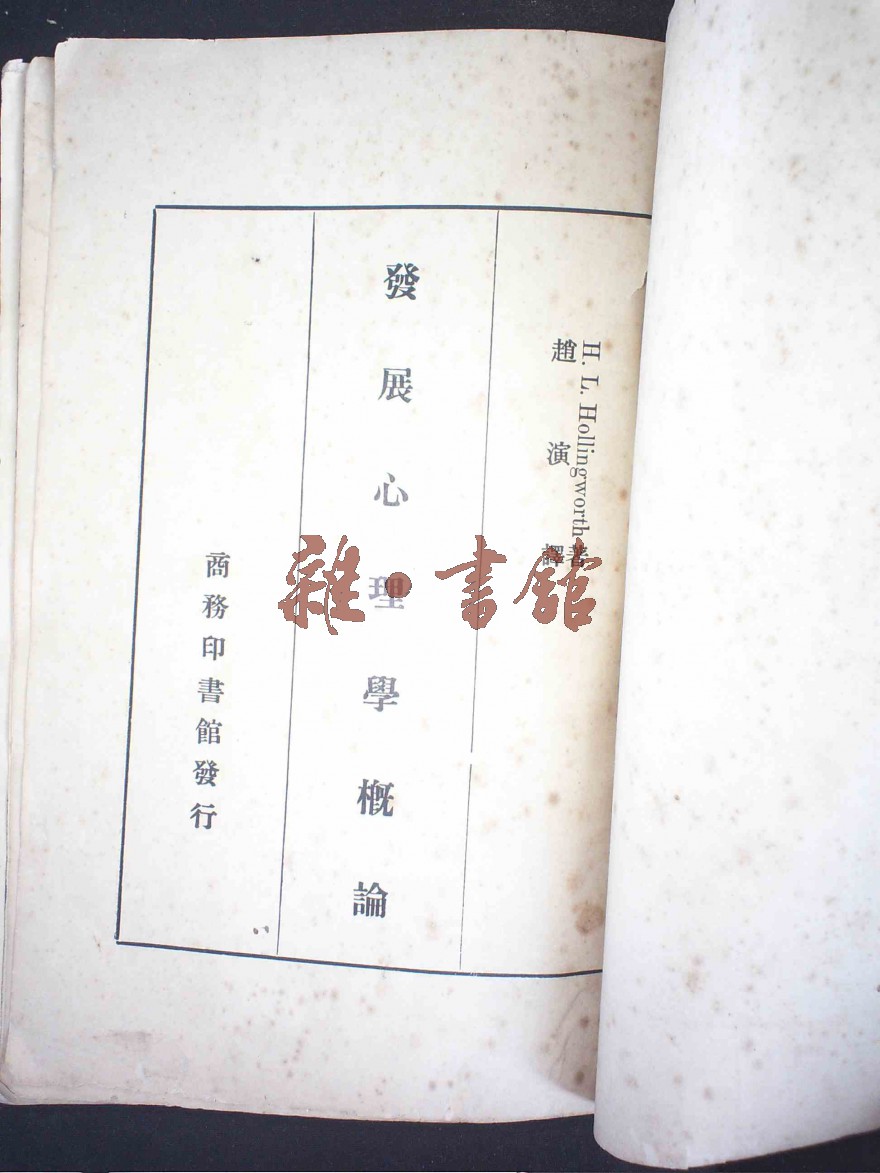 H. L. Hollingworth 著
趙演譯
發展心理學概論
商務印書館發行
雜·書館